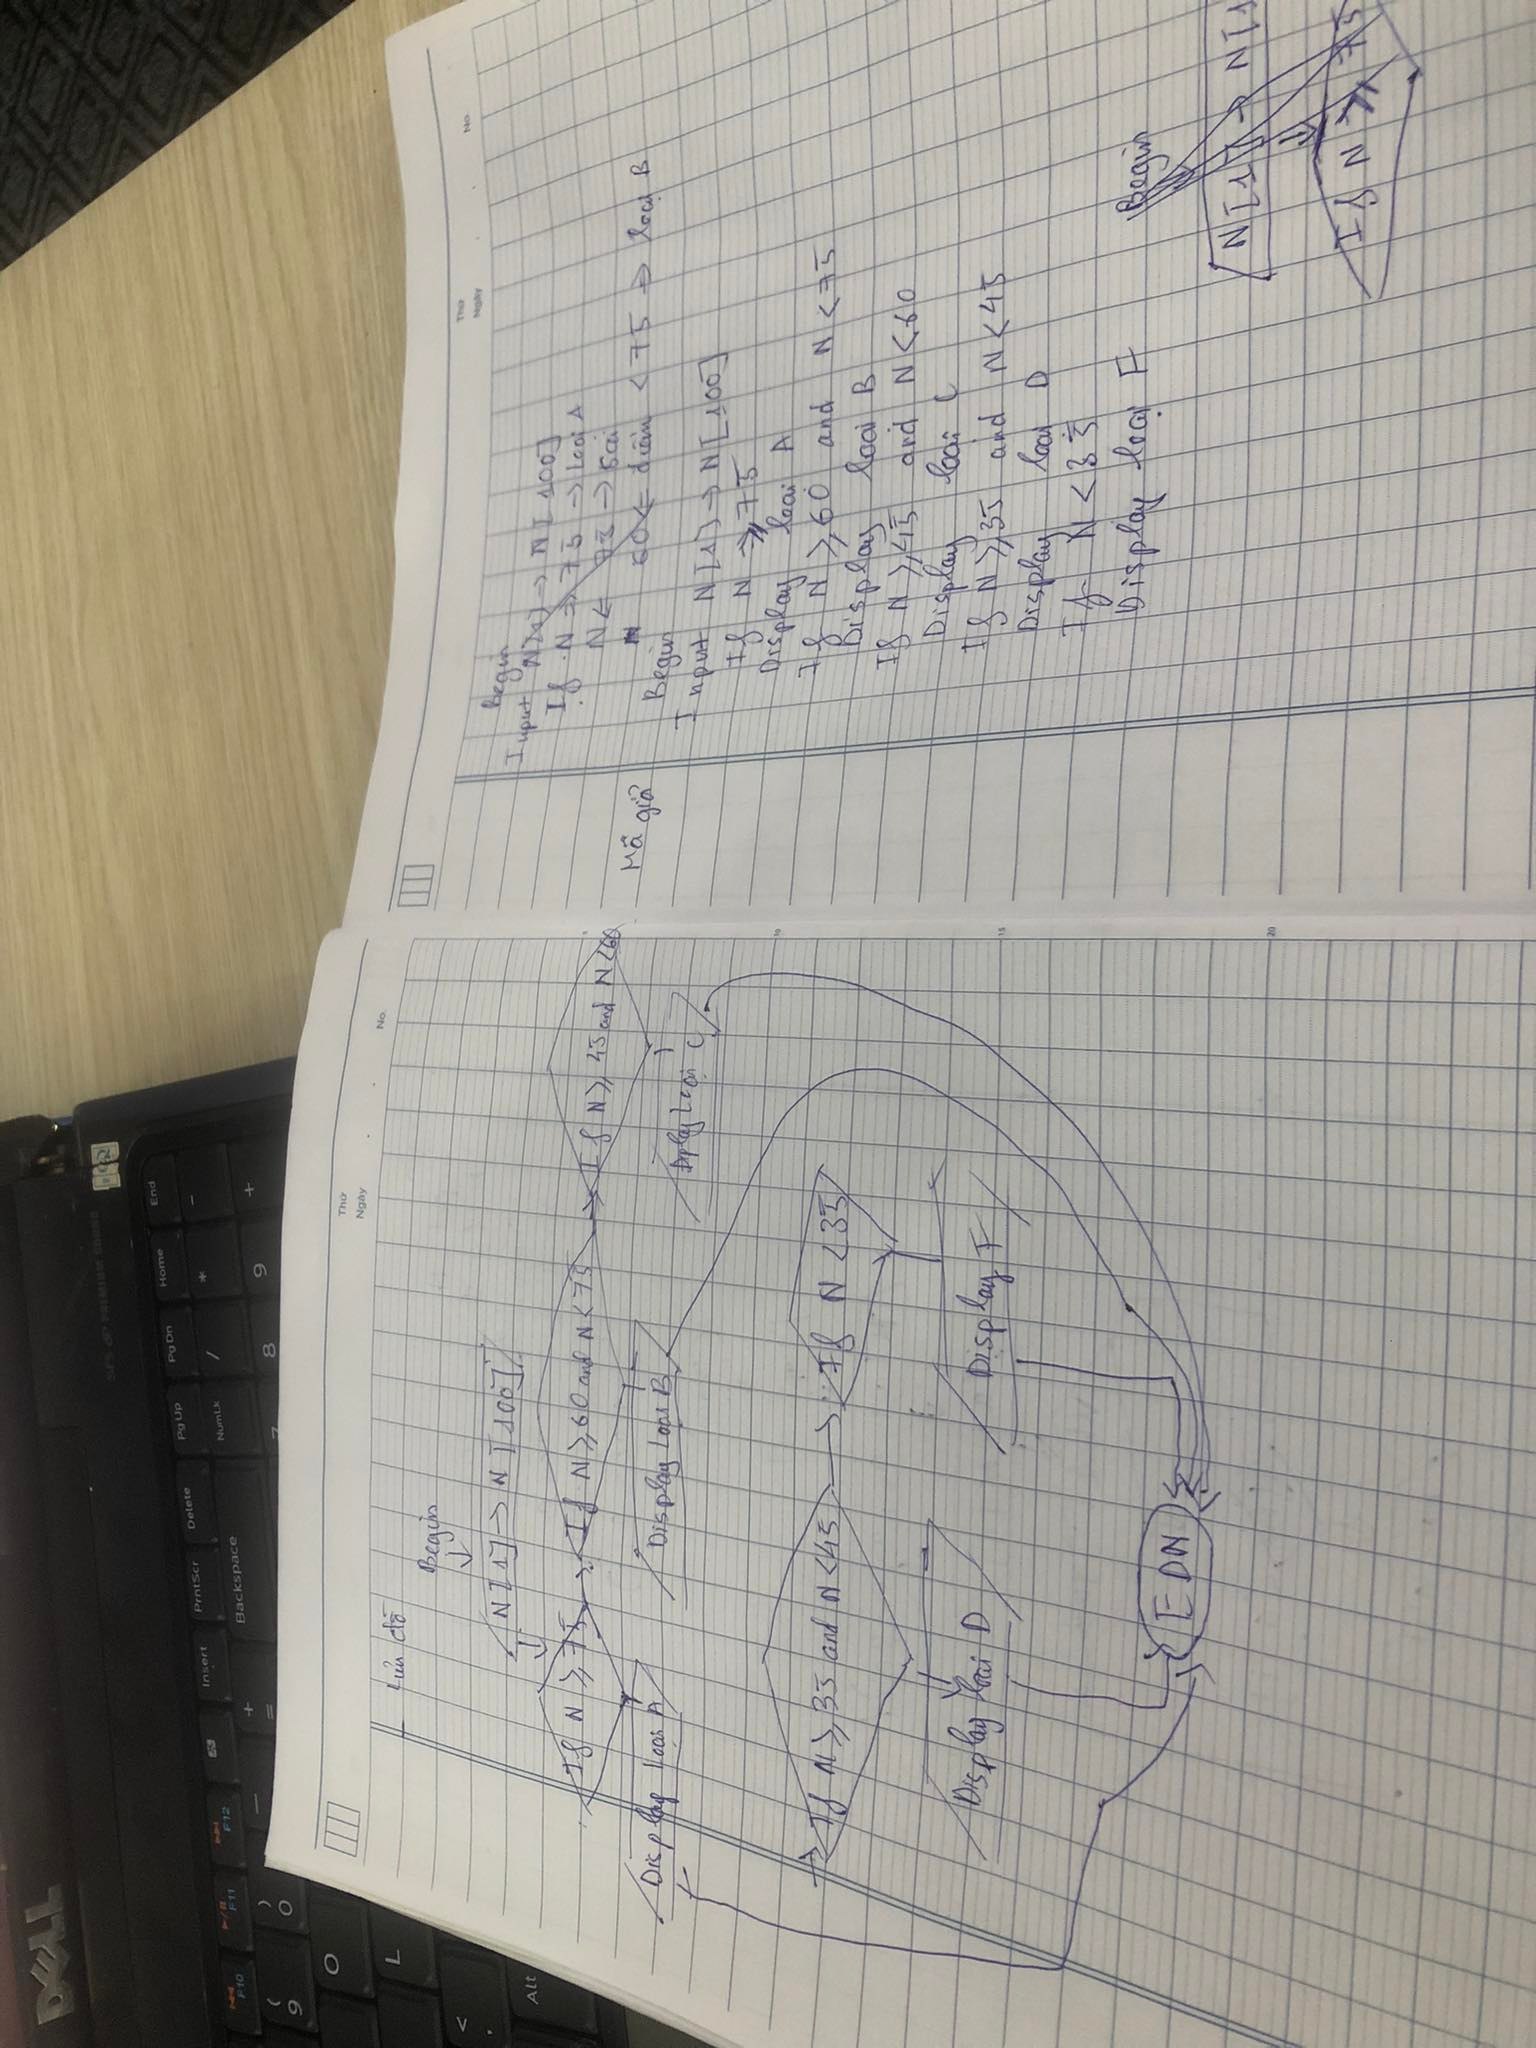 DELL
SRS PREMIUM SOUND
F10
F11
F12
Insert
PrntScr
Delete
PgUp
PgDn
Home
End
Backspace
NumLk
/
*
-
+
=
+
(
9
)
0
7
8
9
O
L
<
Alt
Thứ
Ngày
No.
Lưu đồ
Begin
N[1] → N[100]
If N ≥ 75
If N ≥ 60 and N < 75
If N ≥ 45 and N < 60
Display Loại A
Display Loại B
Dplay Loại C
10
If N ≥ 35 and N < 45
If N < 35
Display loại D
Display F
15
EDN
20
Thứ
Ngày
No.
Begin
Input N[1] → N[100]
If N ≥ 75 → Loại A
→ Sai
60 ≤ điểm < 75 → loại B
Mã giả
Begin
Input N[1] → N[100]
If N ≥ 75
Display loại A
If N ≥ 60 and N < 75
Display loại B
If N ≥ 45 and N < 60
Display loại C
If N ≥ 35 and N < 45
Display loại D
If N < 35
Display loại F
Begin
N[1] → N[1
If N ≥ 75